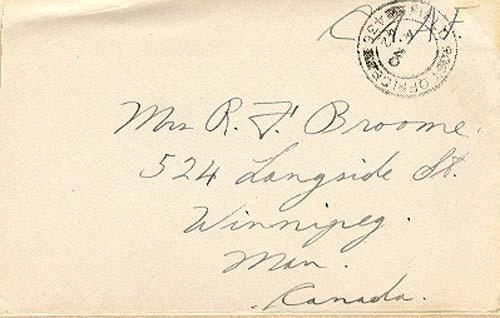 POST OFFICE
436
Mrs R. F. Broome.
524 Langside St.
Winnipeg.
Man.
Canada.